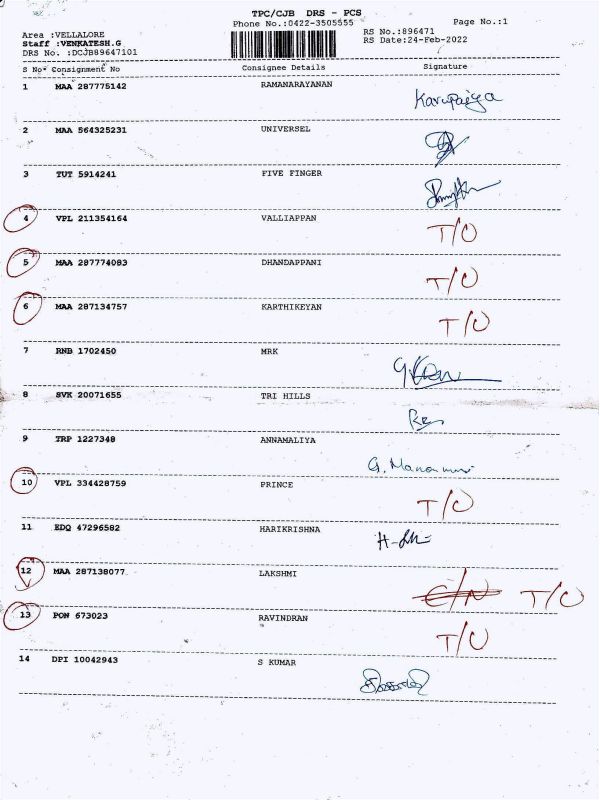 TPC/CJB DRS - PCS
Phone No.:0422-3505555
Page No.:1
Area :VELLALORE
RS No.:896471
Staff :VENKATESH.G
RS Date:24-Feb-2022
DRS No. :DCJB89647101
S No Consignment No Consignee Details Signature
1 MAA 287775142 RAMANARAYANAN
Karupaiya
2 MAA 564325231 UNIVERSEL
3 TUT 5914241 FIVE FINGER
4 VPL 211354164 VALLIAPPAN T/O
5 MAA 287774083 DHANDAPPANI T/O
6 MAA 287134757 KARTHIKEYAN T/O
7 RNB 1702450 MRK
8 SVK 20071655 TRI HILLS
9 TRP 1227348 ANNAMALIYA
10 VPL 334428759 PRINCE T/O
11 EDQ 47296582 HARIKRISHNA
12 MAA 287138077 LAKSHMI C/N T/O
13 PON 673023 RAVINDRAN T/O
14 DPI 10042943 S KUMAR